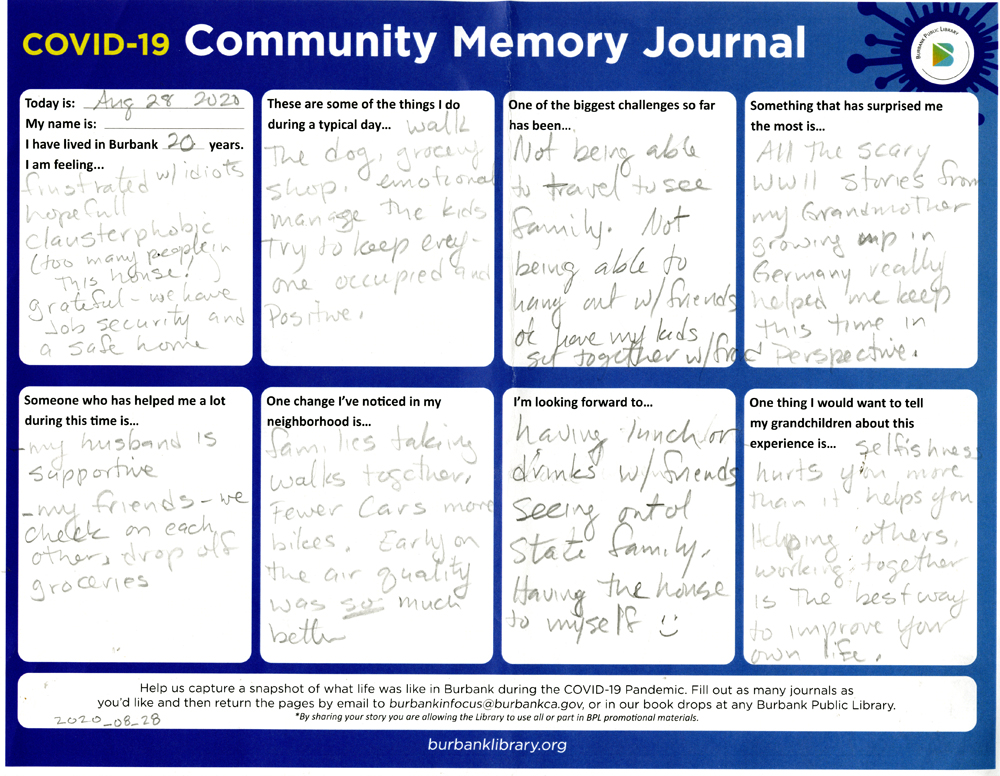 COVID-19 Community Memory Journal
BURBANK PUBLIC LIBRARY
B
Today is: Aug 28 2020
My name is:
I have lived in Burbank 20 years.
I am feeling...
frustrated w/ idiots
hopefull
clausterphobic
(too many people in
This house!)
grateful - we have
Job security and
a safe home
These are some of the things I do
during a typical day... walk
The dog, grocery
shop, emotional
manage the kids
Try to keep every-
one occupied and
Positive.
One of the biggest challenges so far
has been...
Not being able
to travel to see
family. Not
being able to
hang out w/ friends
or have my kids
get together w/
Something that has surprised me
the most is...
All The scary
WWII stories from
my Grandmother
growing up in
Germany really
helped me keep
this time in
Perspective.
Someone who has helped me a lot
during this time is...
-my husband is
supportive
-my friends - we
check on each
other, drop off
groceries
One change I've noticed in my
neighborhood is...
families taking
walks together.
Fewer Cars more
bikes. Early on
the air quality
was so much
better
I'm looking forward to...
having lunch or
drinks w/ friends
Seeing out of
State family.
Having the house
to myself :)
One thing I would want to tell
my grandchildren about this
experience is... selfishness
hurts you more
than it helps you
Helping others,
working together
is The best way
to improve your
own life.
Help us capture a snapshot of what life was like in Burbank during the COVID-19 Pandemic. Fill out as many journals as
you'd like and then return the pages by email to burbankinfocus@burbankca.gov, or in our book drops at any Burbank Public Library.
*By sharing your story you are allowing the Library to use all or part in BPL promotional materials.
2020_08_28
burbanklibrary.org